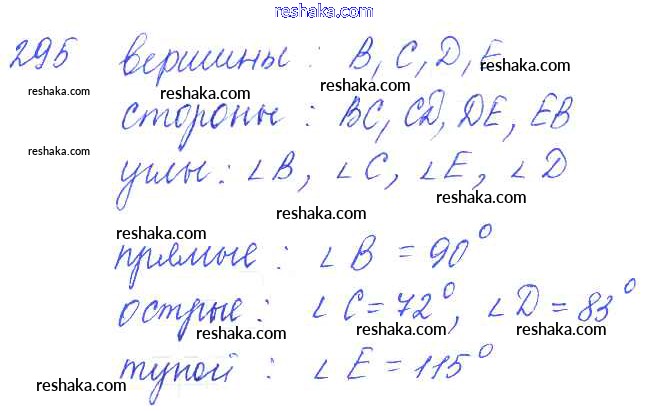 reshaka.com
295 вершины : B, C, D, E
reshaka.com reshaka.com reshaka.com
стороны : BC, CD, DE, EB
reshaka.com reshaka.com
углы : ∠B, ∠C, ∠E, ∠D
reshaka.com reshaka.com
прямые : ∠B = 90°
reshaka.com
острые : ∠C = 72°, ∠D = 83°
reshaka.com reshaka.com reshaka.com
тупой : ∠E = 115°
reshaka.com reshaka.com